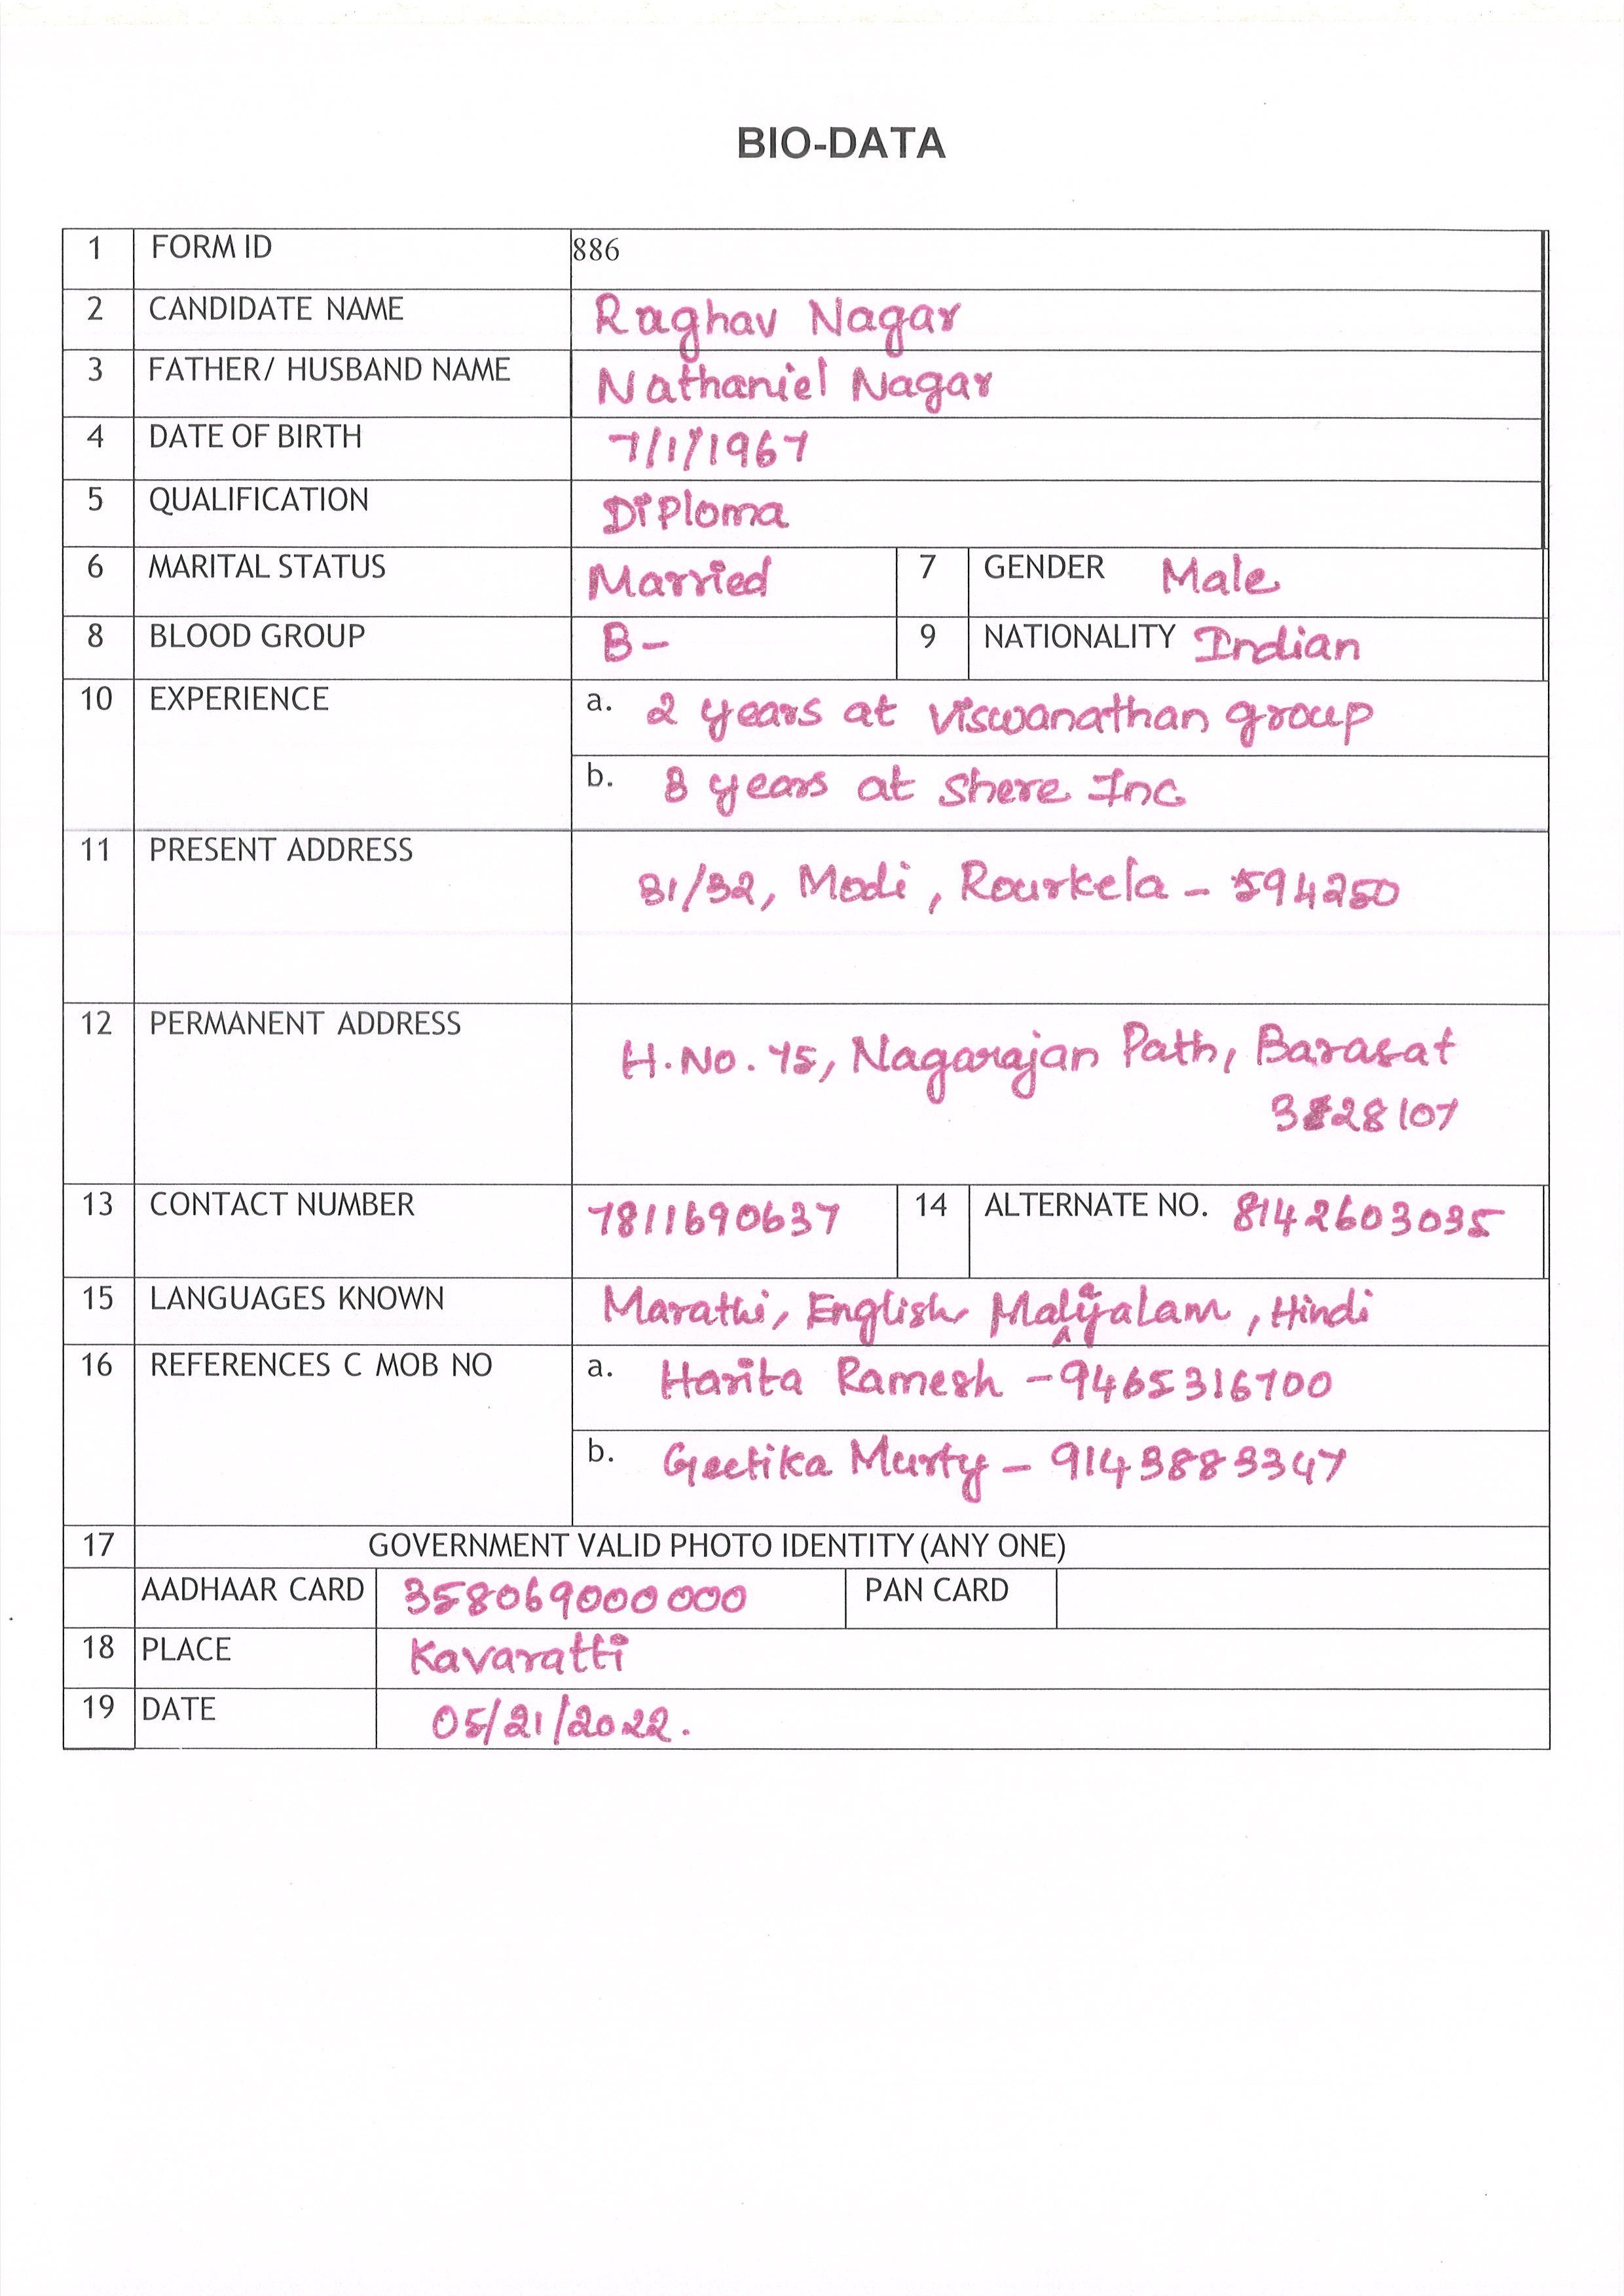 BIO-DATA
1 FORM ID 886
2 CANDIDATE NAME Raghav Nagar
3 FATHER/ HUSBAND NAME Nathaniel Nagar
4 DATE OF BIRTH 7/1/1967
5 QUALIFICATION Diploma
6 MARITAL STATUS Married 7 GENDER Male
8 BLOOD GROUP B- 9 NATIONALITY Indian
10 EXPERIENCE a. 2 years at viswanathan group
b. 8 years at shere Inc
11 PRESENT ADDRESS
31/32, Modi, Rourkela - 594250
12 PERMANENT ADDRESS
H.No. 75, Nagarajan Path, Barasat
13 CONTACT NUMBER 7811690637 14 ALTERNATE NO. 8142603035
15 LANGUAGES KNOWN Marathi, English, Malayalam, Hindi
16 REFERENCES C MOB NO a. Harita Ramesh - 9465316700
b. Geetika Murty - 9143883347
17 GOVERNMENT VALID PHOTO IDENTITY (ANY ONE)
AADHAAR CARD 358069000000 PAN CARD
18 PLACE Kavaratti
19 DATE 05/21/2022.